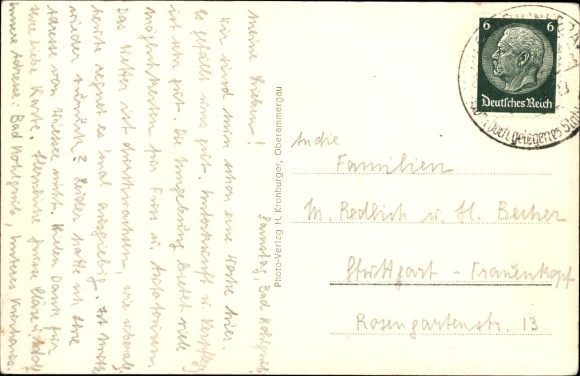 Samstag, Bad Kohlgrub,
Meine Lieben!
Wir sind nun schon eine Woche hier.
es gefällt uns gut. Unterkunft u. Verpfleg.
ist sehr gut. Die Umgebung bietet viel
Möglichkeiten für Fuss u. Autotouren.
Das Wetter ist durchwachsen, wie überall,
heute regnet es mal ausgiebig. Ist
wieder zurück? Leider hatte ich Ihre
Adresse von Wiessee nicht. Vielen Dank für
Ihre liebe Karte. Herzliche Grüsse Claire u. Adolf
Unsere Adresse: Bad Kohlgrub,
Photo-Verlag H. Kronburger, Oberammergau
6 6
Deutsches Reich
hoch gelegenes Stahl
An die
Familien
M. Redlich u. H. Becher
Stuttgart - Frauenkopf
Rosengartenstr. 13